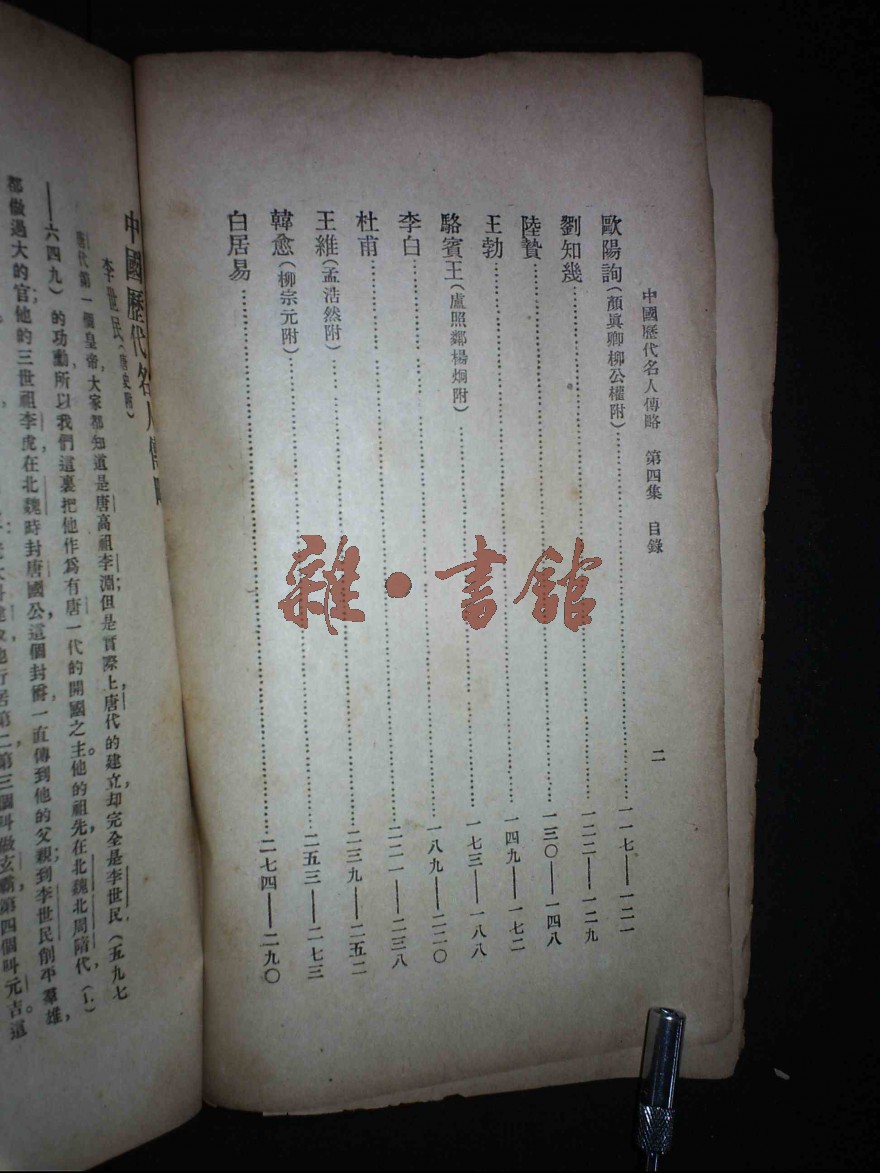 中國歷代名人傳略　第四集　目錄　二
歐陽詢（顏眞卿柳公權附）……一一七——一二一
劉知幾……一二二——一二九
陸贄……一三〇——一四八
王勃……一四九——一七二
駱賓王（盧照鄰楊炯附）……一七三——一八八
李白……一八九——二二〇
杜甫……二二一——二三八
王維（孟浩然附）……二三九——二五二
韓愈（柳宗元附）……二五三——二七三
白居易……二七四——二九〇
雜·書館
中國歷代名人傳略
李世民
唐代第一個皇帝，大家都知道是唐高祖李淵；但是實際上，唐代的建立，却完全是李世民（五九七
——六四九）的功勳，所以我們這裏把他作爲有唐一代的開國之主。他的祖先，在北魏北周隋代，（1）
都做過大的官；他的三世祖李虎，在北魏時，封唐國公，這個封爵，一直傳到他的父親；到李世民削平羣雄，
行居第二，第三個叫做玄霸，第四個叫元吉。這